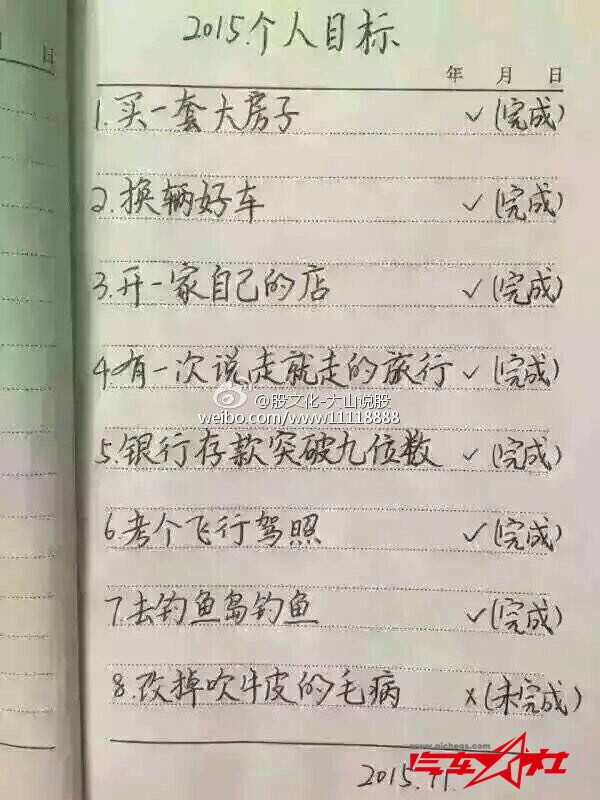 2015.个人目标
日
年 月 日
1.买一套大房子 ✓(完成)
2.换辆好车 ✓(完成)
3.开一家自己的店 ✓(完成)
4.有一次说走就走的旅行 ✓(完成)
@股文化-大山说股
weibo.com/www11118888
5.银行存款突破九位数 ✓(完成)
6.考个飞行驾照 ✓(完成)
7.去钓鱼岛钓鱼 ✓(完成)
8.改掉吹牛皮的毛病 ×(未完成)
www.qichegs.com
汽车社
2015.11